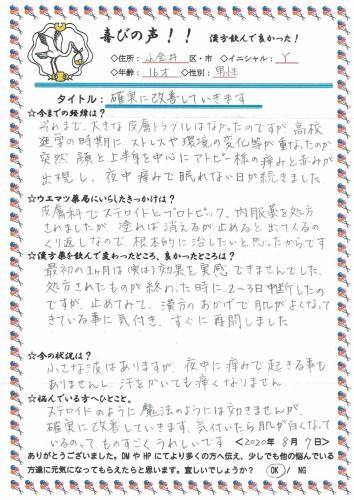 喜びの声！！ 漢方飲んで良かった！
◇住所： 小金井 区・市 ◇イニシャル： Y
◇年齢： 16才 ◇性別： 男性
タイトル： 確実に改善していきます
☆今までの経緯は？
それまで、大きな皮膚トラブルはなかったのですが、高校
進学の時期に、ストレスや環境の変化等が重なったのか
突然 顔と上半身を中心にアトピー様の痛みと赤みが
出現し、夜中痛みで眠れない日が続きました。
☆ウエマツ薬局にいらしたきっかけは？
皮膚科でステロイドとプロトピック、内服薬を処方
されましたが 塗れば消えるが止めると出てくるの
くり返しなので、根本的に治したいと思ったからです
☆漢方薬を飲んで変わったところ、良かったところは？
最初の1ヶ月は(実は)効果を実感できませんでした。
処方されたものが終わった時に、2〜3日中断したの
ですが、止めてみて、漢方のおかげで肌がよくなって
きている事に気付き、すぐに再開しました
☆今の状況は？
小さな波はありますが、夜中に痛みで起きる事も
ありませんし、汗をかいても痛くなりません
☆悩んでいる方へひとこと。
ステロイドのように魔法のようには効きませんが、
確実に改善していきます、気付いたら肌が白くなって
いるのって ものすごくうれしいです ＜2020年 8月 7日＞
ありがとうございました。DMやHPにてより多くの方へ伝え、少しでも他の悩んでいる
方達に元気になってもらえたらと思います。宜しいでしょうか？ OK / NG